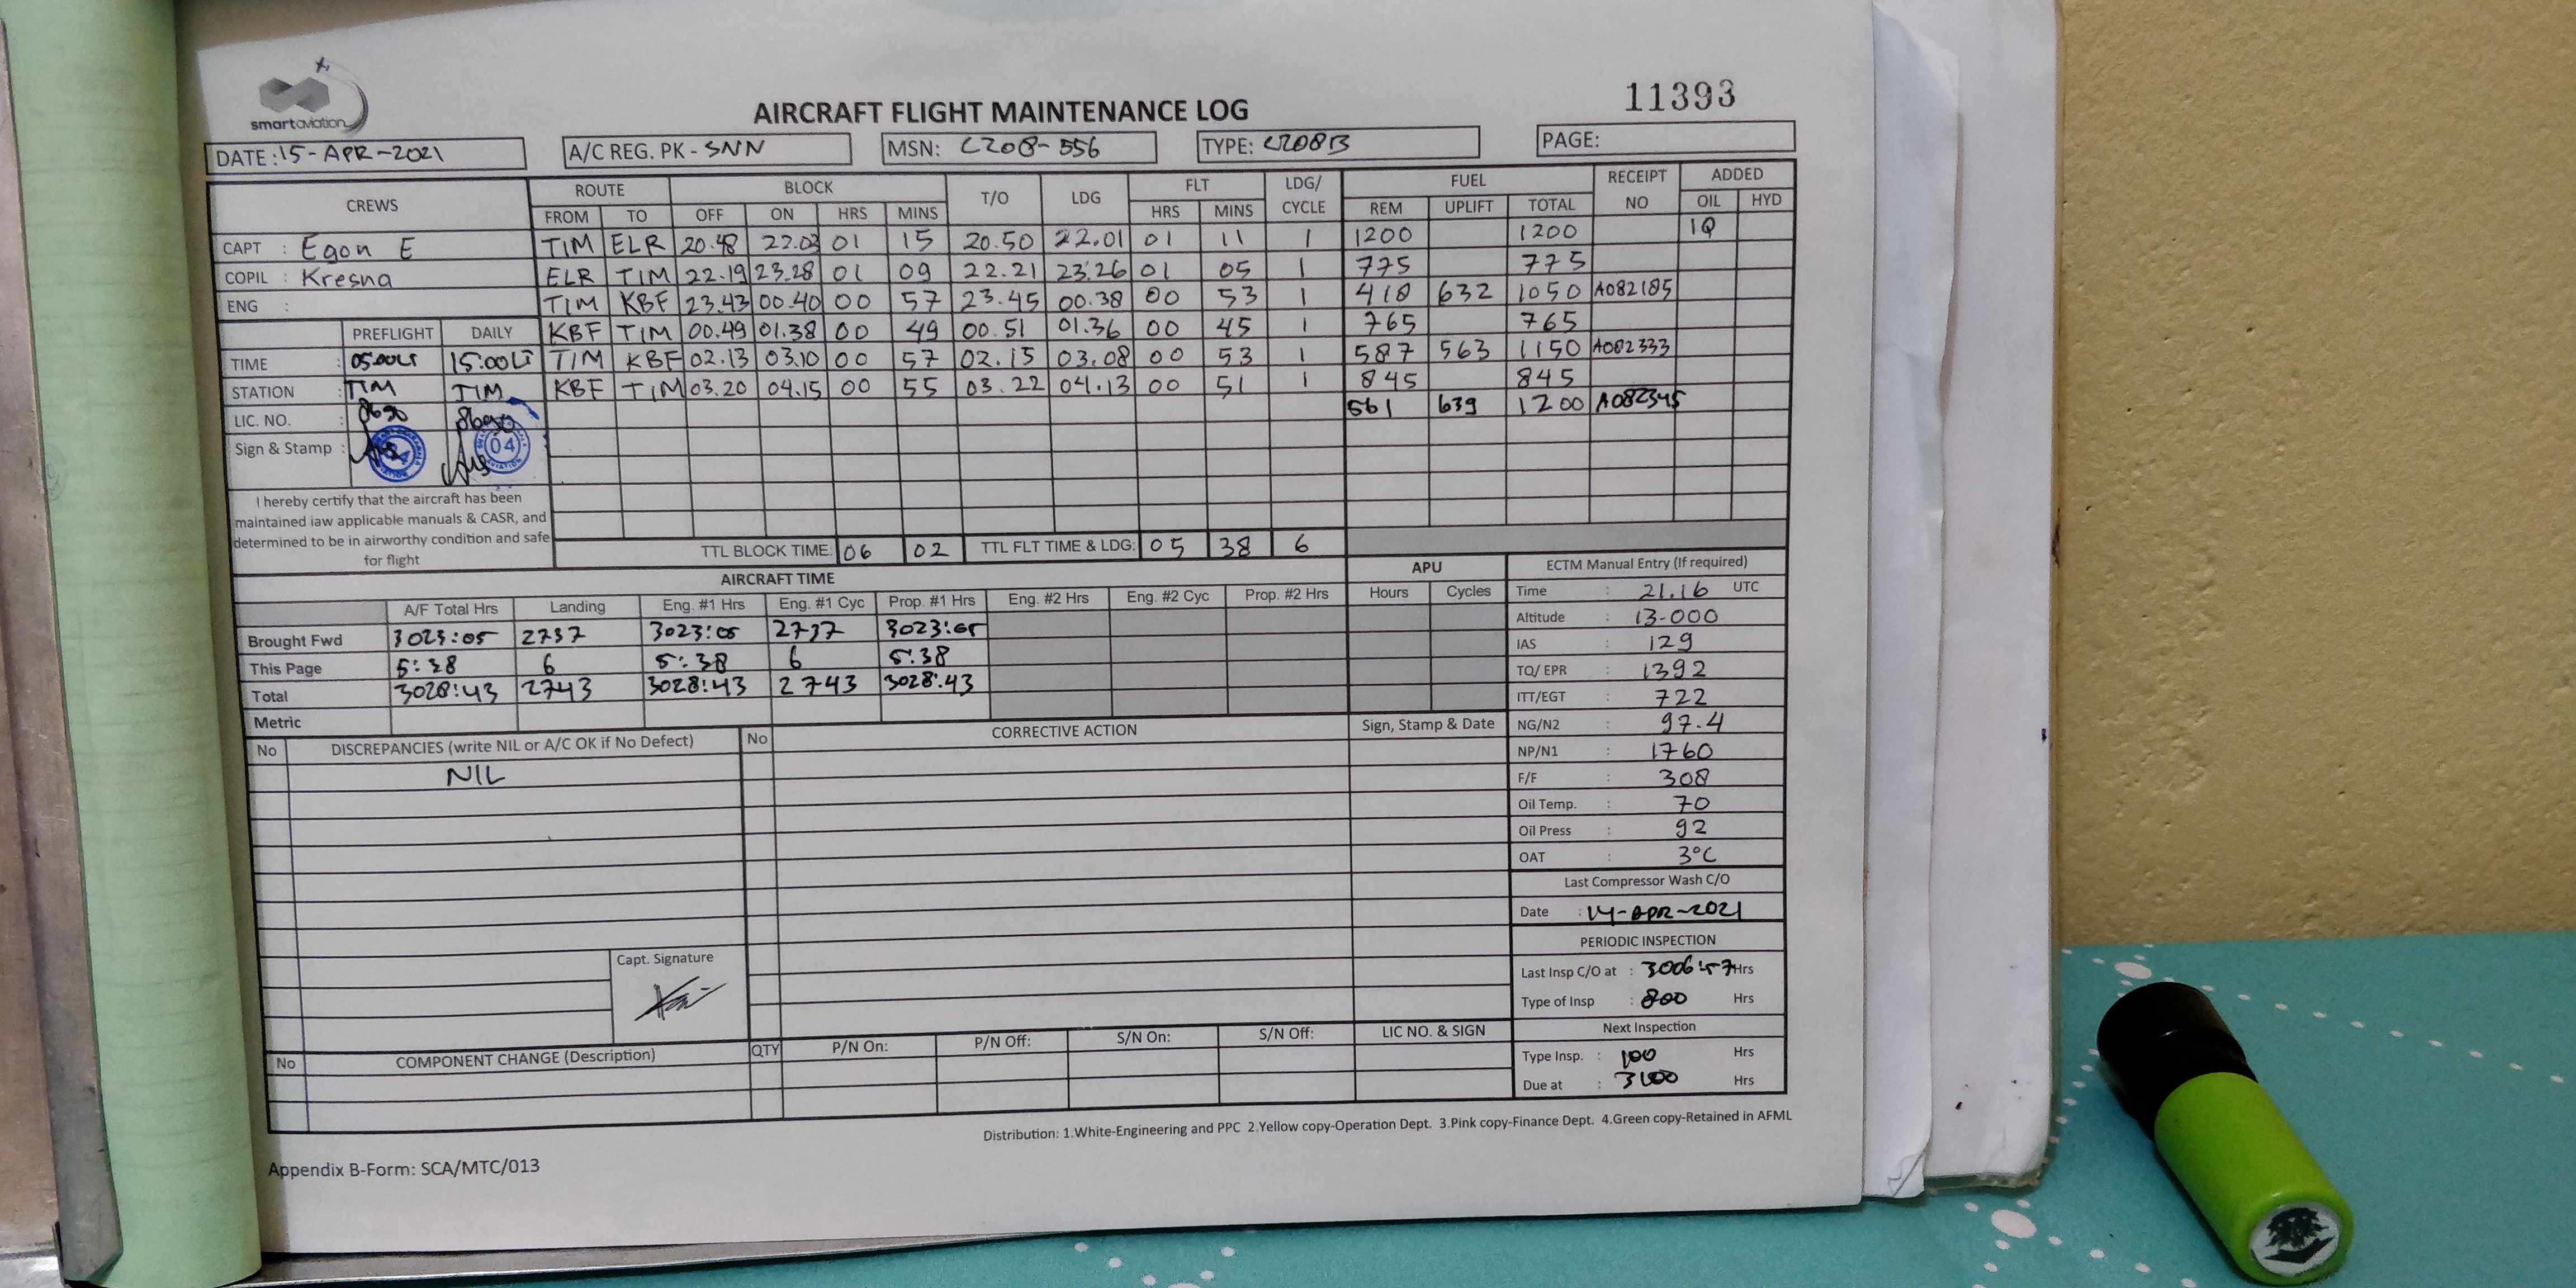 smartaviation
AIRCRAFT FLIGHT MAINTENANCE LOG
11393
DATE : 15-APR-2021 A/C REG. PK - SNN MSN: C208-556 TYPE: C208B PAGE:
CREWS ROUTE BLOCK T/O LDG FLT LDG/ CYCLE FUEL RECEIPT NO ADDED
FROM TO OFF ON HRS MINS HRS MINS REM UPLIFT TOTAL OIL HYD
CAPT : Egon E TIM ELR 20.48 22.03 01 15 20.50 22.01 01 11 1 1200 1200 1Q
COPIL : Kresna ELR TIM 22.19 23.28 01 09 22.21 23.26 01 05 1 775 775
ENG : TIM KBF 23.43 00.40 00 57 23.45 00.38 00 53 1 418 632 1050 A082185
PREFLIGHT DAILY KBF TIM 00.49 01.38 00 49 00.51 01.36 00 45 1 765 765
TIME : 05.00LT 15:00LT TIM KBF 02.13 03.10 00 57 02.15 03.08 00 53 1 587 563 1150 A082333
STATION : TIM TIM KBF TIM 03.20 04.15 00 55 03.22 04.13 00 51 1 845 845
LIC. NO. : 561 639 1200 A082345
Sign & Stamp : 04
I hereby certify that the aircraft has been
maintained iaw applicable manuals & CASR, and
determined to be in airworthy condition and safe
for flight
TTL BLOCK TIME: 06 02 TTL FLT TIME & LDG: 05 38 6
AIRCRAFT TIME APU
A/F Total Hrs Landing Eng. #1 Hrs Eng. #1 Cyc Prop. #1 Hrs Eng. #2 Hrs Eng. #2 Cyc Prop. #2 Hrs Hours Cycles
Brought Fwd 3023:05 2737 3023:05 2737 3023:05
This Page 5:38 6 5:38 6 5:38
Total 3028:43 2743 3028:43 2743 3028:43
Metric
ECTM Manual Entry (If required)
Time : 21.16 UTC
Altitude : 13.000
IAS : 129
TQ/ EPR : 1392
ITT/EGT : 722
NG/N2 : 97.4
NP/N1 : 1760
F/F : 308
Oil Temp. : 70
Oil Press : 92
OAT : 3°C
Last Compressor Wash C/O
Date : 14-APR-2021
PERIODIC INSPECTION
Last Insp C/O at : 3006:57 Hrs
Type of Insp : 800 Hrs
Next Inspection
Type Insp. : 100 Hrs
Due at : 3100 Hrs
No DISCREPANCIES (write NIL or A/C OK if No Defect) No CORRECTIVE ACTION Sign, Stamp & Date
NIL
Capt. Signature
No COMPONENT CHANGE (Description) QTY P/N On: P/N Off: S/N On: S/N Off: LIC NO. & SIGN
Distribution: 1.White-Engineering and PPC 2.Yellow copy-Operation Dept. 3.Pink copy-Finance Dept. 4.Green copy-Retained in AFML
Appendix B-Form: SCA/MTC/013